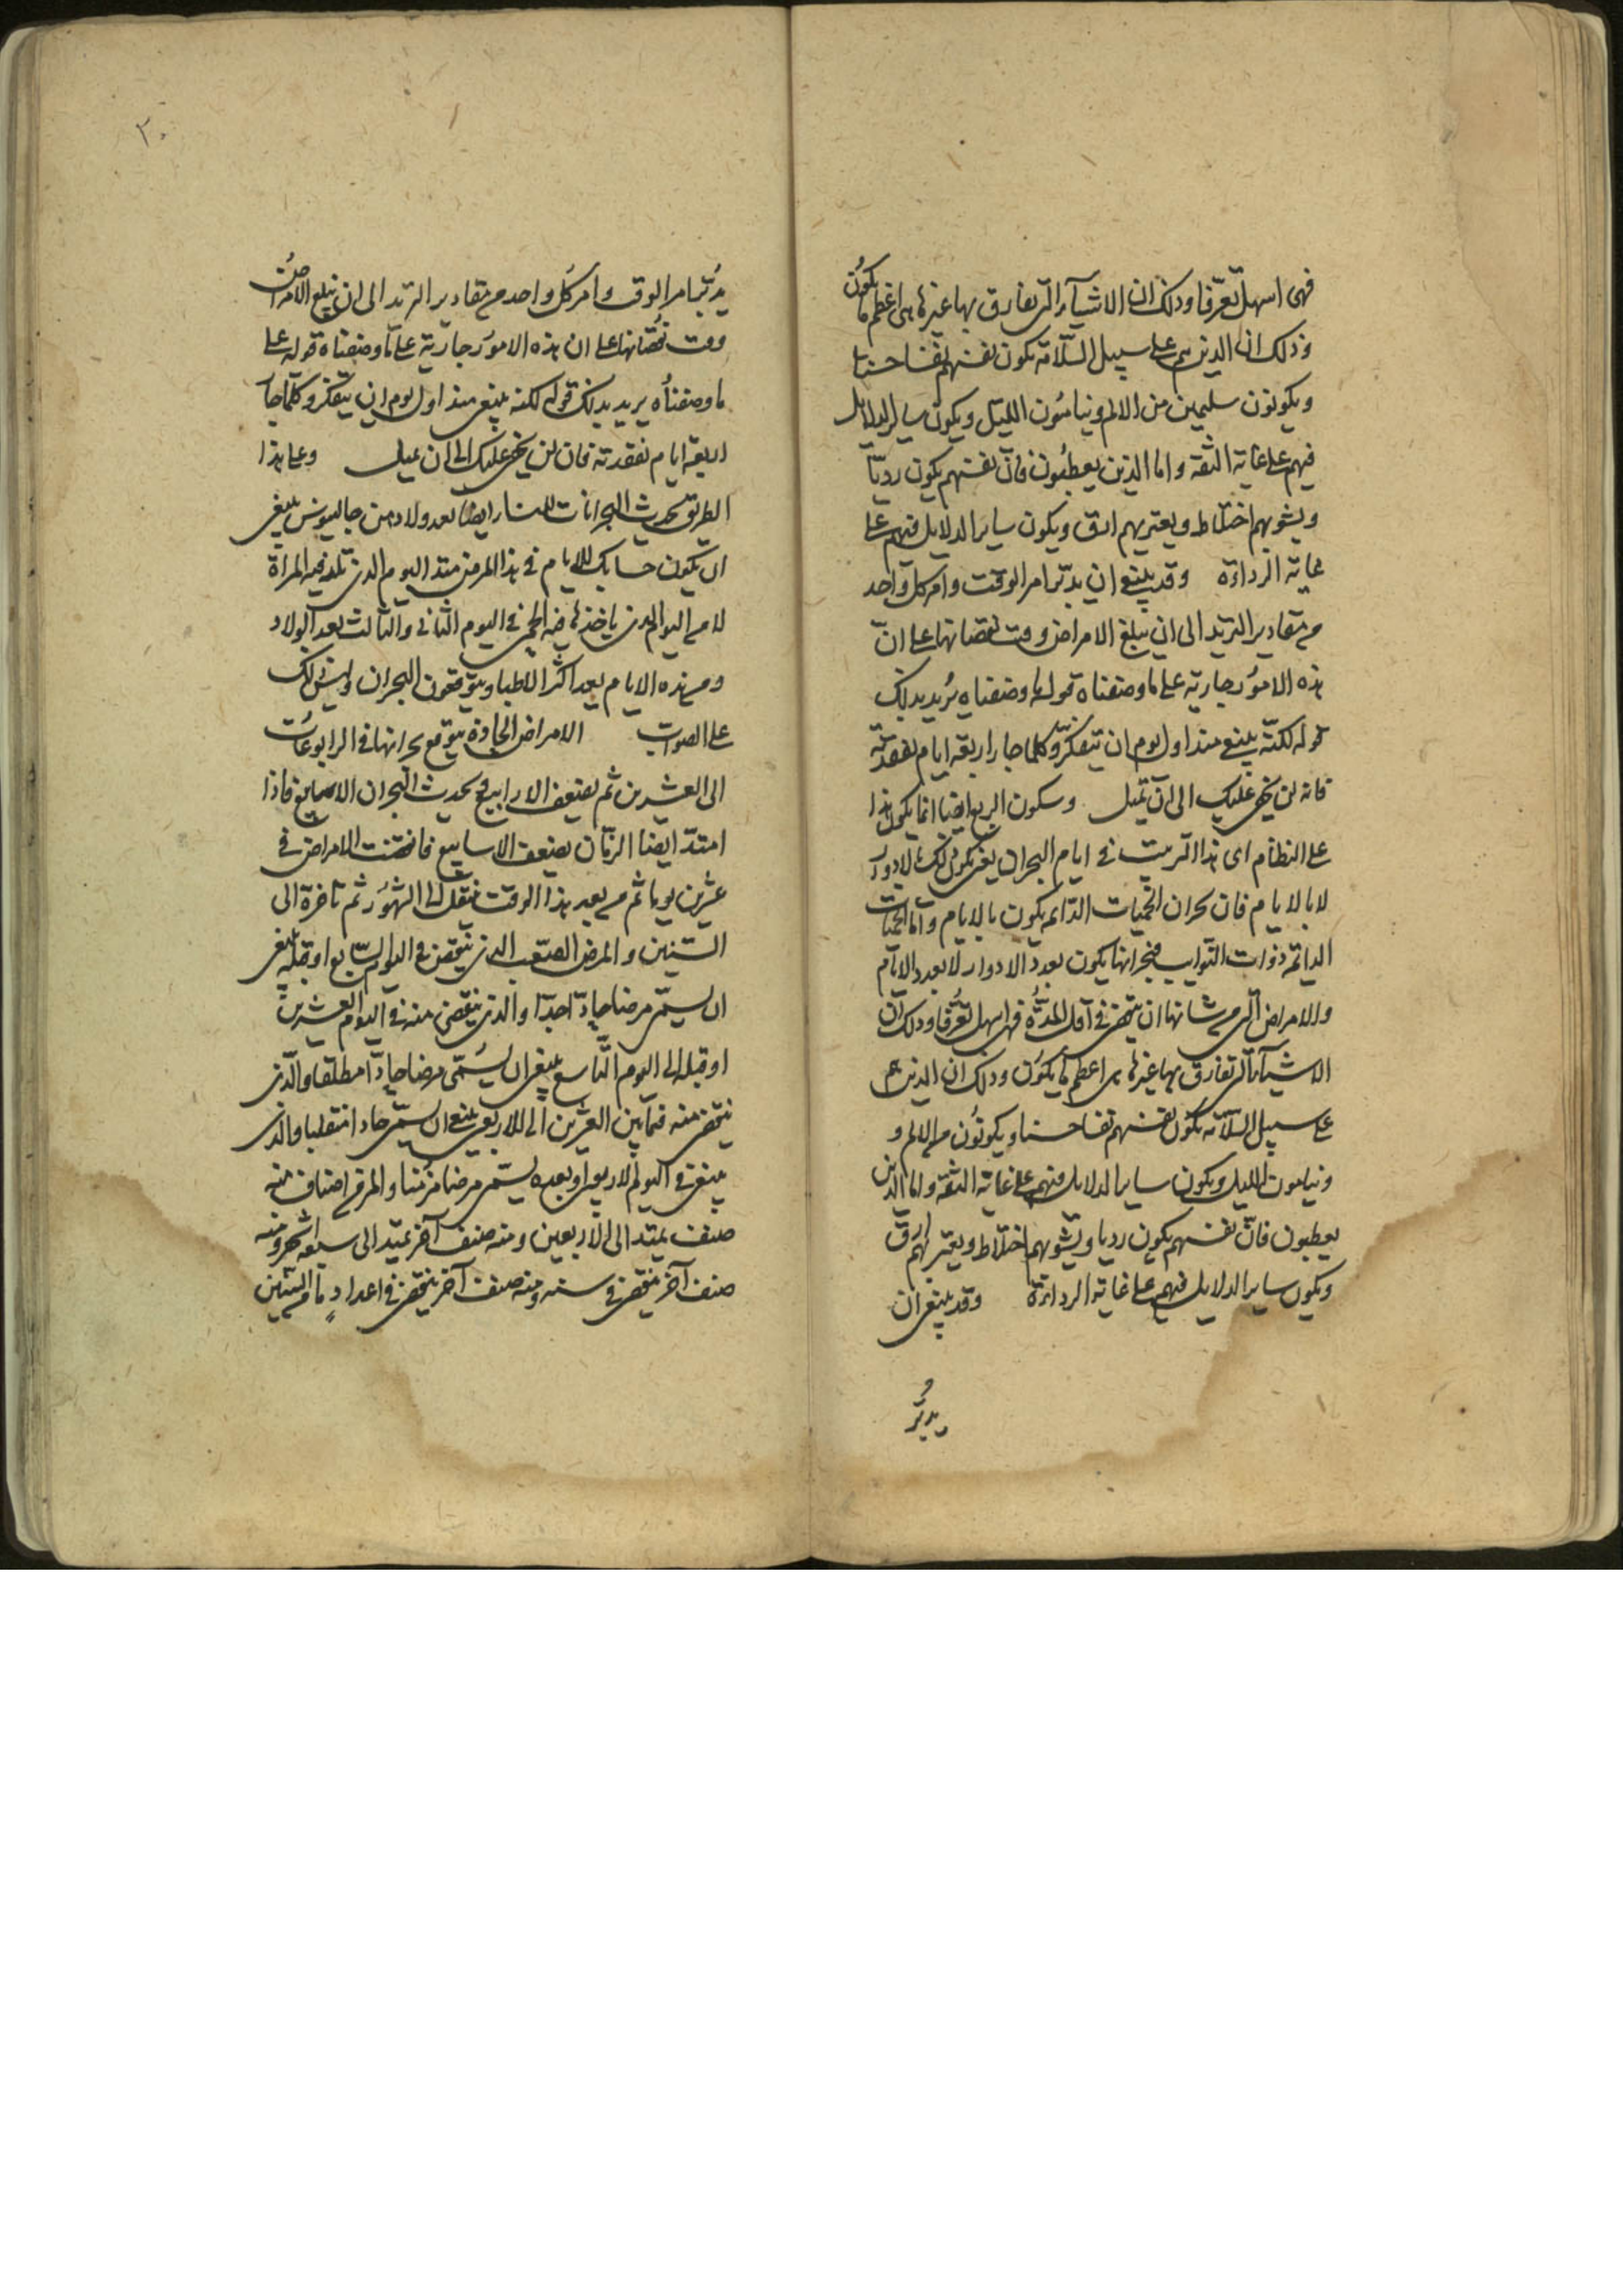 فهى اسهل تعرّفا وذلك ان الاشيآء التى تفارق بها غيرها هى اعظم ما يكون
وذلك ان الذين هم على سبيل السلامة يكون نفسهم نفسا حسنا
ويكونون سليمين من الالم وينامون الليل ويكون ساير الدلايل
فيهم على غاية الثقة واما الذين يعطبون فان نفسهم يكون رديّا
ويشوبهم اختلاط ويعتريهم ارق ويكون ساير الدلايل فيهم على
غاية الرداءة وقد ينبغى ان يدبّر امر الوقت وامر كل واحد
من مقادير التزيد الى ان يبلغ الامراض وقت نقصانها على ان
هذه الامور جارية على ما وصفناه قوله ما وصفناه يريد بذلك
قوله لكنه ينبغى منذ اول يوم ان تتفكر وكلما جاز اربعة ايام تفقدته
فانه لن يخفى عليك الى ان تميل وسكون الربع ايضا انما يكون هذا
على النظام اى هذا الترتيب فى ايام البحران يعنى يكون ذلك بالادوار
لا بالايام فان بحران الحميات الدائمه يكون بالايام واما الحميات
الدائمه ذوات النوايب فبحرانها يكون بعدد الادوار لا بعدد الايام
والامراض التى من شانها ان ينقضى فى اقل المدة فهى اسهل تعرّفا وذلك ان
الاشيآء التى تفارق بها غيرها هى اعظم ما يكون وذلك ان الذين هم
على سبيل السلامه يكون نفسهم نفسا حسنا ويكونون من الالم و
وينامون الليل ويكون ساير الدلايل فيهم على غاية الثقه واما الذين
يعطبون فانّ نفسهم يكون رديا ويشوبهم اختلاط ويعتريهم ارق
ويكون ساير الدلايل فيهم على غاية الرداءة وقد ينبغى ان
يدبّر
٢٠
يدبّر امر الوقت وامر كل واحد من مقادير التزيد الى ان يبلغ الامراض
وقت نقصانها على ان هذه الامور جارية على ما وصفناه قوله على
ما وصفناه يريد بذلك قوله لكنه ينبغى منذ اول يوم ان يتفكر وكلما جاز
اربعة ايام تفقدته فان لن يخفى عليك الى ان يميل وعلى هذا
الطريق يحدث البحرانات للنساء ايضا بعد ولادهن جالينوس ينبغى
ان يكون حسابك للايام فى هذا المرض منذ اليوم الذى تلد فيه المراة
لا من اليوم الذى ياخذها فيه الحمى فى اليوم الثانى والثالث بعد الولاد
ومن هذه الايام يعد اكثر الاطبا ويتوقعون البحران وليس ذلك
على الصواب الامراض الحادة يتوقع بحرانها فى الرابوعات
الى العشرين ثم يضعف الارابيع ويحدث البحران الاسابيع فاذا
امتدّ ايضا الزمان يضعف الاسابيع فانقضت الامراض فى
عشرين يوما ثم من بعد هذا الوقت ينقل الى الشهور ثم تاخرة الى
السنين والمرض الصعب الذى ينقضى فى اليوم السابع او قبله ينبغى
ان يسمّى مرضا حادّا جدّا والذى ينقضى منه فى اليوم العشرين
او قبله الى اليوم التاسع ينبغى ان يسمّى مرضا حادّا مطلقا والذى
ينقضى منه فيما بين العشرين الى الاربعين ينبغى ان يسمّى حادا منتقلبا والذى
ينقضى فى اليوم الاربعين او بعده يسمّى مرضا مزمنا والمرض اصناف منه
صنف يمتد الى الاربعين ومنه صنف آخر يمتد الى سبعة اشهر ومنه
صنف آخر ينقضى فى سنه ومنه صنف آخر ينقضى فى اعداد ما من السنين